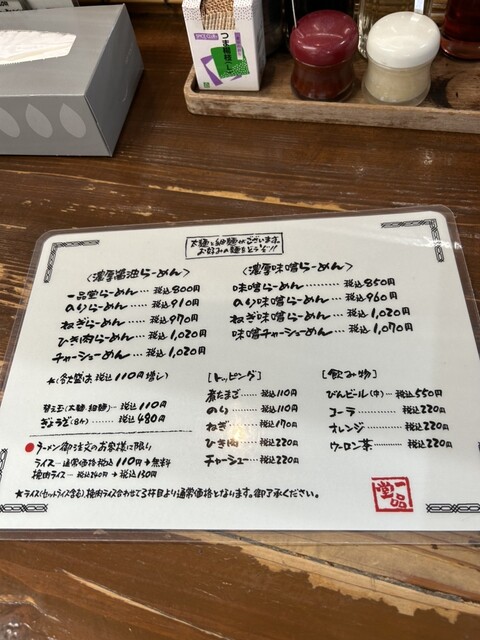 つまようじ
太麺と細麺がございます。
お好みの麺をどうぞ!!
〈濃厚醤油らーめん〉
一品堂らーめん…税込800円
のりらーめん……税込910円
ねぎらーめん……税込970円
ひき肉らーめん…税込1,020円
チャーシューめん…税込1,020円
★(各大盛は税込110円増し)
替え玉(太麺・細麺)…税込110円
ぎょうざ(8ケ)……税込480円
〈濃厚味噌らーめん〉
味噌らーめん……税込850円
のり味噌らーめん…税込960円
ねぎ味噌らーめん…税込1,020円
味噌チャーシューめん…税込1,070円
[トッピング]
煮たまご……税込110円
のり…………税込110円
ねぎ…………税込170円
ひき肉………税込220円
チャーシュー…税込220円
[飲み物]
びんビール(中)…税込550円
コーラ…………税込220円
オレンジ………税込220円
ウーロン茶……税込220円
●ラーメン御注文のお客様に限り
ライス…通常価格税込110円→無料
挽肉ライス…税込240円→税込130円
★ライス(セットライス含む)、挽肉ライス合わせて3杯目より通常価格となります。御了承ください。
一品堂